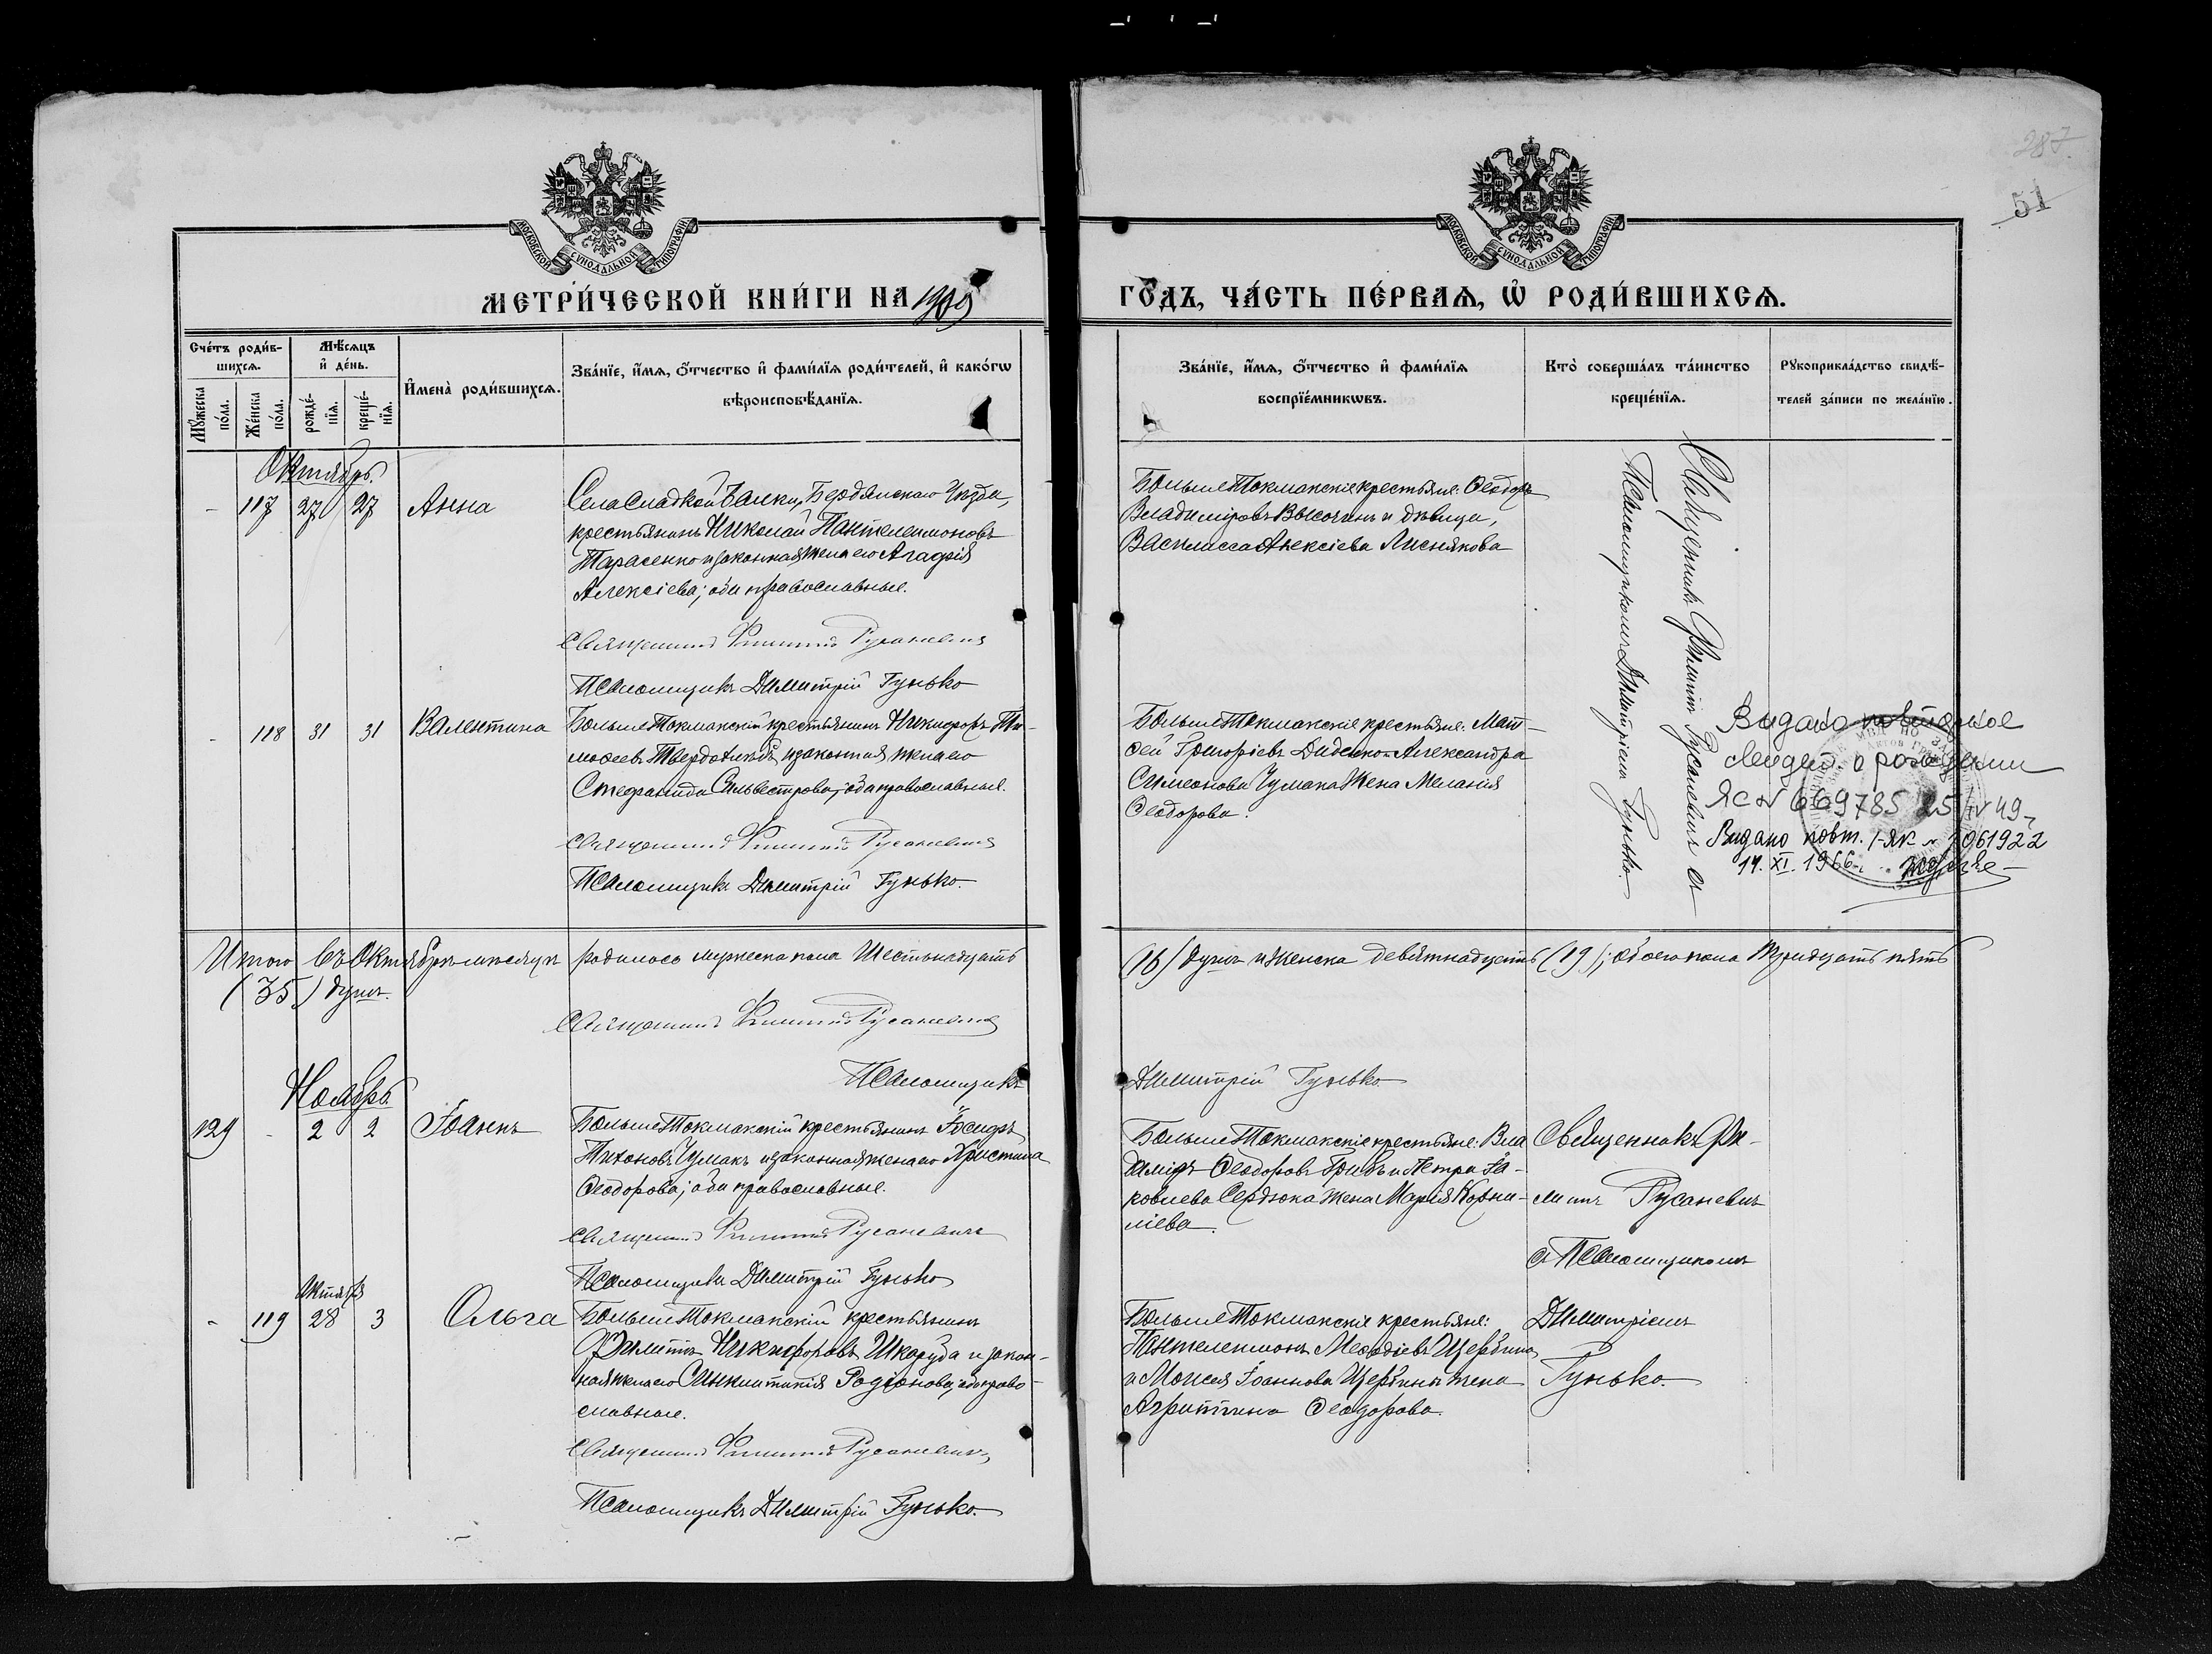 287
51
МОСКОВСКОЙ СѴНОДАЛЬНОЙ ТИПОГРАФІИ
МОСКОВСКОЙ СѴНОДАЛЬНОЙ ТИПОГРАФІИ
МЕТРИ́ЧЕСКОЙ КНИ́ГИ НА 1909
ГО́ДЪ, ЧА́СТЬ ПЕ́РВАѦ, Ѡ҆ РОДИ́ВШИХСѦ.
Сче́тъ роди́в-
шихсѧ.
Мꙋ́жеска по́ла.
Же́нска по́ла.
Мѣ́сѧцъ
и҆ де́нь.
рожде́-
нїѧ.
креще́-
нїѧ.
И҆мена̀ роди́вшихсѧ.
Зва́нїе, и҆́мѧ, ѻ҆́тчество и҆ фами́лїѧ роди́телей, и҆ како́гѡ
вѣроисповѣ́данїѧ.
Зва́нїе, и҆́мѧ, ѻ҆́тчество и҆ фами́лїѧ
воспрїе́мникѡвъ.
Кто̀ соверша́лъ та́инство
креще́нїѧ.
Рꙋкоприкла́дство свидѣ́-
телей за́писи по жела́нїю.
Октябрь.
- 117 27 27 Анна
Села Сладкой Балки, Бердянскаго Уѣзда,
крестьянинъ Николай Пантелеимоновъ
Тарасенко и законная жена его Агафія
Алексіева; оба православные.
Священникъ Филиппъ Русаневичъ
Псаломщикъ Димитрій Гунько
БольшеТокмакскіе крестьяне: Ѳеодоръ
Владиміровъ Высочинъ и дѣвица,
Василисса Алексіева Лиснякова
Священникъ Филиппъ Русаневичъ съ
Псаломщикомъ Димитріемъ Гунько.
- 118 31 31 Валентина
БольшеТокмакскій крестьянинъ Никифоръ Ти-
моѳеевъ Твердохлѣбъ и законная жена его
Стефанида Сильвестрова; оба православные.
Священникъ Филиппъ Русаневичъ
Псаломщикъ Димитрій Гунько.
БольшеТокмакскіе крестьяне: Мат-
ѳей Григоріевъ Диденко и Александра
Симеонова Чумака жена Меланія
Ѳеодорова.
Видано повторное
свидет. о рождении
ЯС № 669785 25/IV 49
Видано повт. I-ЯК № 1061922
14. XI. 1966
Итого въ Октябрѣ мѣсяцѣ родилось мужеска пола Шестьнадцать
(16) душъ и женска девятнадцать (19); обоего пола Тридцать пять
(35) душъ.
Священникъ Филиппъ Русаневичъ
Псаломщикъ Димитрій Гунько
Ноябрь
129 - 2 2 Іоаннъ
БольшеТокмакскій крестьянинъ Іосифъ
Тихоновъ Чумакъ и законная жена его Христина
Ѳеодорова; оба православные.
Священникъ Филиппъ Русаневичъ
Псаломщикъ Димитрій Гунько
БольшеТокмакскіе крестьяне: Вла
диміръ Ѳеодоровъ Грибъ и Петра Іа-
ковлева Сердюка жена Марія Корни-
ліева.
Священникъ Фи-
липпъ Русаневичъ
съ Псаломщикомъ
Димитріемъ
Гунько.
Октября
- 119 28 3 Ольга
БольшеТокмакскій крестьянинъ
Филиппъ Никифоровъ Шкаруда и закон-
ная жена его Синклитикія Родіонова; оба право-
славные.
Священникъ Филиппъ Русаневичъ
Псаломщикъ Димитрій Гунько.
БольшеТокмакскіе крестьяне:
Пантелеимонъ Меѳодіевъ Щербина
и Моисея Іоаннова Щербины жена
Агриппина Ѳеодорова.